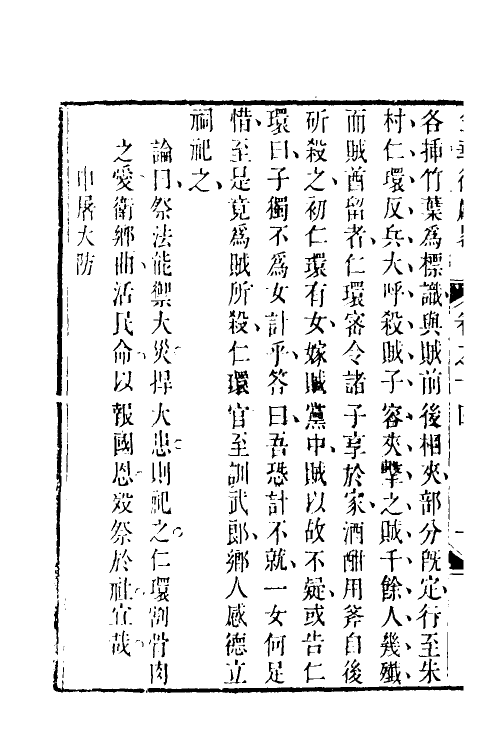 各揷竹葉爲標識與賊前後相夾部分旣定行至朱
村仁環反兵大呼殺賊子容夾擊之賊千餘人幾殲
而賊酋留者仁環審令諸子享於家酒酣用斧自後
斫殺之初仁環有女嫁賊黨中賊以故不疑或告仁
環曰子獨不爲女計乎答曰吾恐計不就一女何足
惜至是竟爲賊所殺仁環官至訓武郎鄉人感德立
祠祀之
論曰祭法能禦大災捍大患則祀之仁環割骨肉
之愛衛鄉曲活民命以報國恩歿祭於社宜哉
申屠大防